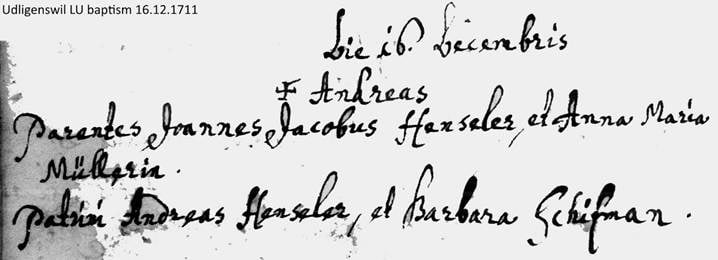 Udligenswil LU baptism 16.12.1711
Die 16. Decembris
Andreas
Parentes Joannes Jacobus Henseler, et Anna Maria
Müllerin.
Patrini Andreas Henseler, et Barbara Schifman.